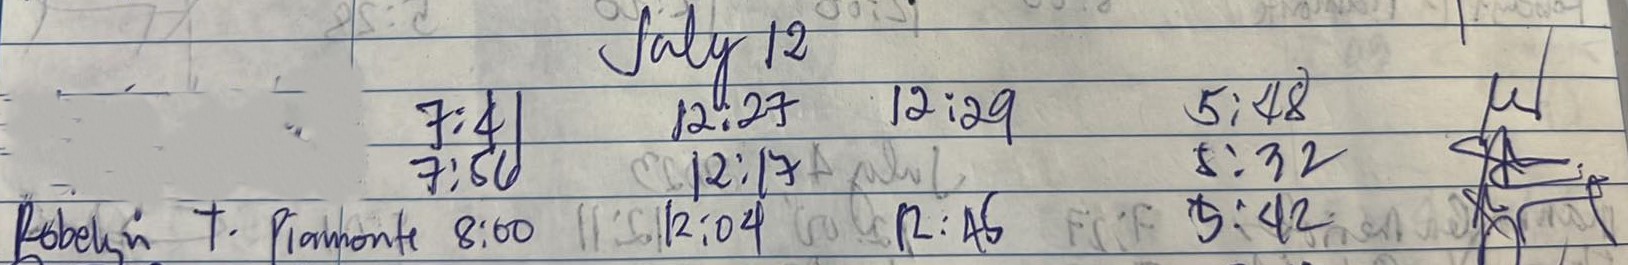 July 12
7:41 12:27 12:29 5:48
7:56 12:17 5:32
Robelyn T. Piamonte 8:00 12:04 12:46 5:42